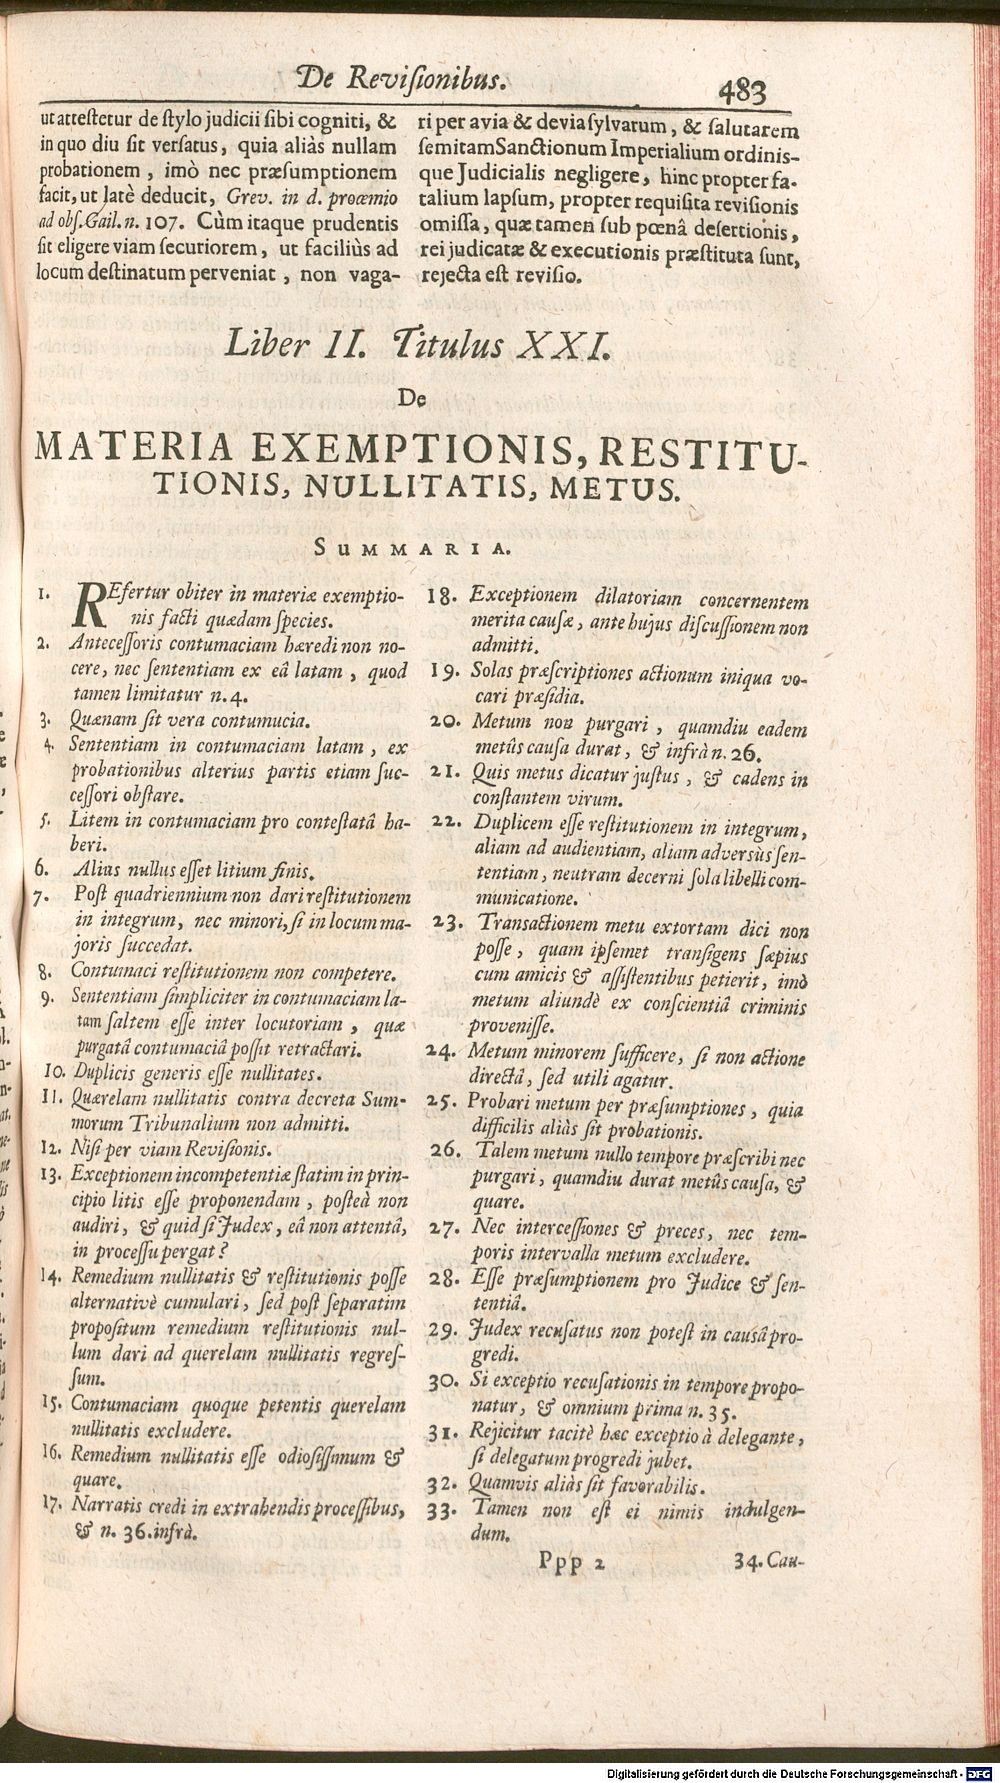 De Revisionibus.
483
ut attestetur de stylo judicii sibi cogniti, &
in quo diu sit versatus, quia aliàs nullam
probationem, imò nec præsumptionem
facit, ut latè deducit, Grev. in d. proœmio
ad obs. Gail. n. 107. Cùm itaque prudentis
sit eligere viam securiorem, ut faciliùs ad
locum destinatum perveniat, non vaga-
ri per avia & devia sylvarum, & salutarem
semitam Sanctionum Imperialium ordinis-
que Judicialis negligere, hinc propter fa-
talium lapsum, propter requisita revisionis
omissa, quæ tamen sub pœnâ desertionis,
rei judicatæ & executionis præstituta sunt,
rejecta est revisio.
Liber II. Titulus XXI.
De
MATERIA EXEMPTIONIS, RESTITU-
TIONIS, NULLITATIS, METUS.
SUMMARIA.
1. REfertur obiter in materiæ exemptio-
nis facti quædam species.
2. Antecessoris contumaciam hæredi non no-
cere, nec sententiam ex eâ latam, quod
tamen limitatur n. 4.
3. Quænam sit vera contumucia.
4. Sententiam in contumaciam latam, ex
probationibus alterius partis etiam suc-
cessori obstare.
5. Litem in contumaciam pro contestatâ ha-
beri.
6. Alias nullus esset litium finis.
7. Post quadriennium non dari restitutionem
in integrum, nec minori, si in locum ma-
joris succedat.
8. Contumaci restitutionem non competere.
9. Sententiam simpliciter in contumaciam la-
tam saltem esse inter locutoriam, quæ
purgatâ contumaciâ possit retractari.
10. Duplicis generis esse nullitates.
11. Quærelam nullitatis contra decreta Sum-
morum Tribunalium non admitti.
12. Nisi per viam Revisionis.
13. Exceptionem incompetentiæ statim in prin-
cipio litis esse proponendam, posteà non
audiri, & quid si Judex, eâ non attentâ,
in processu pergat?
14. Remedium nullitatis & restitutionis posse
alternativè cumulari, sed post separatim
propositum remedium restitutionis nul-
lum dari ad querelam nullitatis regres-
sum.
15. Contumaciam quoque petentis querelam
nullitatis excludere.
16. Remedium nullitatis esse odiosissimum &
quare.
17. Narratis credi in extrahendis processibus,
& n. 36. infrà.
18. Exceptionem dilatoriam concernentem
merita causæ, ante hujus discussionem non
admitti.
19. Solas præscriptiones actionum iniqua vo-
cari præsidia.
20. Metum non purgari, quamdiu eadem
metûs causa durat, & infrà n. 26.
21. Quis metus dicatur justus, & cadens in
constantem virum.
22. Duplicem esse restitutionem in integrum,
aliam ad audientiam, aliam adversùs sen-
tentiam, neutram decerni sola libelli com-
municatione.
23. Transactionem metu extortam dici non
posse, quam ipsemet transigens sæpius
cum amicis & assistentibus petierit, imò
metum aliundè ex conscientiâ criminis
provenisse.
24. Metum minorem sufficere, si non actione
directâ, sed utili agatur.
25. Probari metum per præsumptiones, quia
difficilis aliàs sit probationis.
26. Talem metum nullo tempore præscribi nec
purgari, quamdiu durat metûs causa, &
quare.
27. Nec intercessiones & preces, nec tem-
poris intervalla metum excludere.
28. Esse præsumptionem pro Judice & sen-
tentiâ.
29. Judex recusatus non potest in causâ pro-
gredi.
30. Si exceptio recusationis in tempore propo-
natur, & omnium prima n. 35.
31. Rejicitur tacitè hæc exceptio à delegante,
si delegatum progredi jubet.
32. Quamvis aliàs sit favorabilis.
33. Tamen non est ei nimis indulgen-
dum.
Ppp 2
34. Cau-
Digitalisierung gefördert durch die Deutsche Forschungsgemeinschaft - DFG